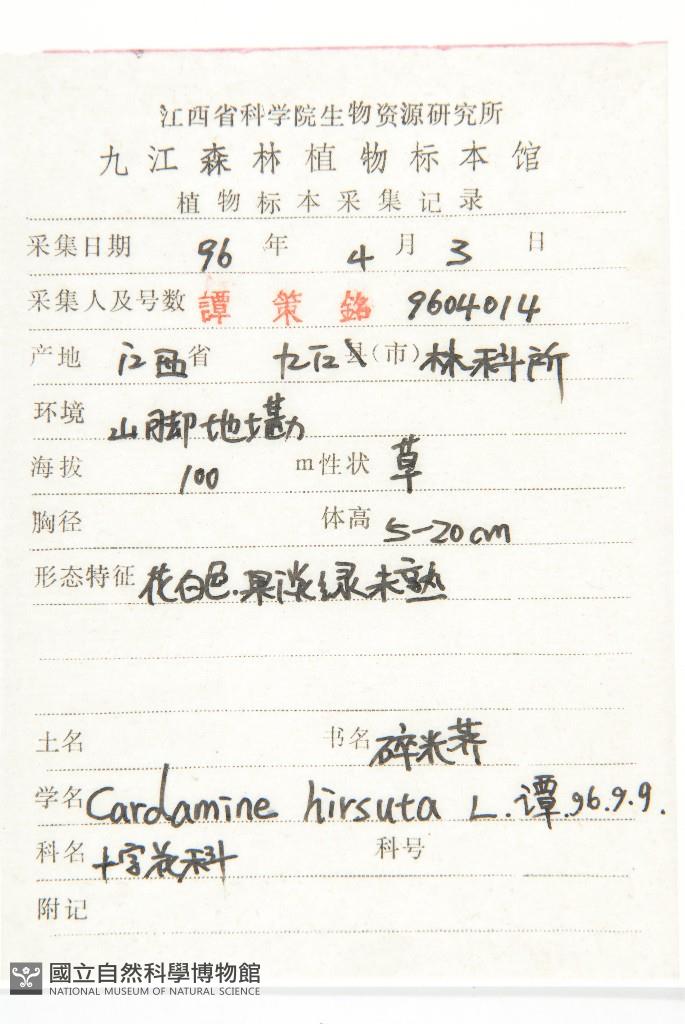 江西省科学院生物资源研究所
九江森林植物标本馆
植物标本采集记录
采集日期 96 年 4 月 3 日
采集人及号数 譚策銘 9604014
产地 江西省 九江县(市) 林科所
环境 山脚地墈
海拔 100 m性状 草
胸径 体高 5-20cm
形态特征 花白色.果淡绿未熟
土名 书名 碎米荠
学名 Cardamine hirsuta L. 谭.96.9.9.
科名 十字花科 科号
附记
國立自然科學博物館
NATIONAL MUSEUM OF NATURAL SCIENCE